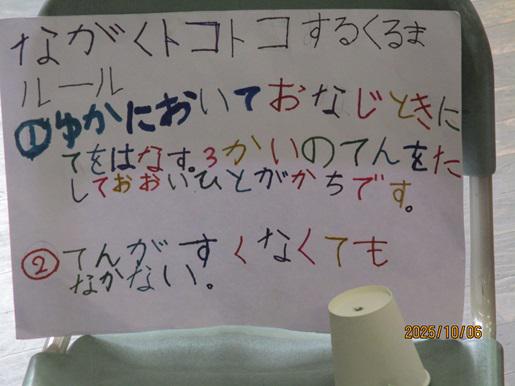 ながくトコトコするくるま
ルール
①ゆかにおいておなじときに
てをはなす。3かいのてんをた
しておおいひとがかちです。
②てんがすくなくても
なかない。
2025/10/06